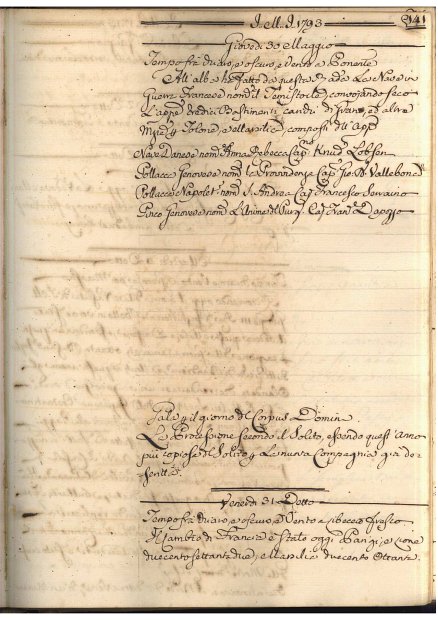 141
A. D. 1793
Giovedi 30 Maggio
Tempo frà chiaro, e oscuro, e Vento a Ponente
All'alba hà fatto da questa Rada La Nave in
Guerra Francese nom.ta il Temistocle, convojando seco
L'app.e dredici Bastimenti carichi di grano, ed altre
Tolone, e Marsilia, composti dell'app.
Nave Danese nom.ta Anna Rebecca Cap. Knud Lobsen
Pollacca Genovese nom.ta la Provvidenza Cap. Gio. B. Vallebona
Pollacca Napolet. nom.ta S. Andrea Cap. Francesco
Pinco Genovese nom.to L'Anime del Purg. Cap. Fran.
Gala p. il giorno del Corpus Domine
La Processione secondo il Solito, essendo quest'Anno
più copiosa del Solito p. La nuova Compagnia già de-
scritta.
Venerdi 31 Detto
Tempo frà chiaro, e oscuro, e Vento a Libeccio fresco
Il Cambio di Francia è stato oggi Parigi, e Lione
duecento settantadue, e Marsilia duecento Ottanta